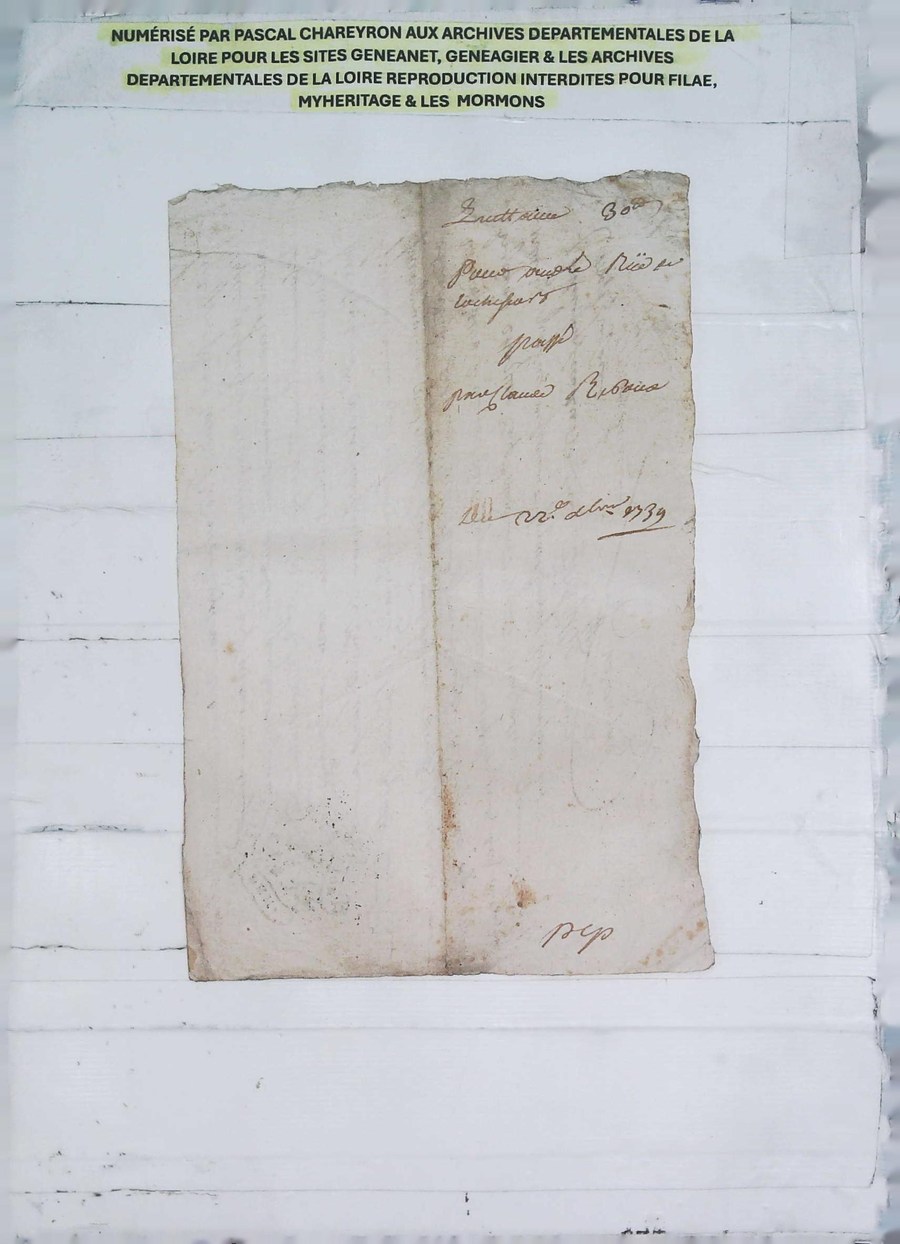 NUMÉRISÉ PAR PASCAL CHAREYRON AUX ARCHIVES DEPARTEMENTALES DE LA
LOIRE POUR LES SITES GENEANET, GENEAGIER & LES ARCHIVES
DEPARTEMENTALES DE LA LOIRE REPRODUCTION INTERDITES POUR FILAE,
MYHERITAGE & LES MORMONS
Quittance 30
Pour
passé
par Claude
Du 22e 1739
pcp